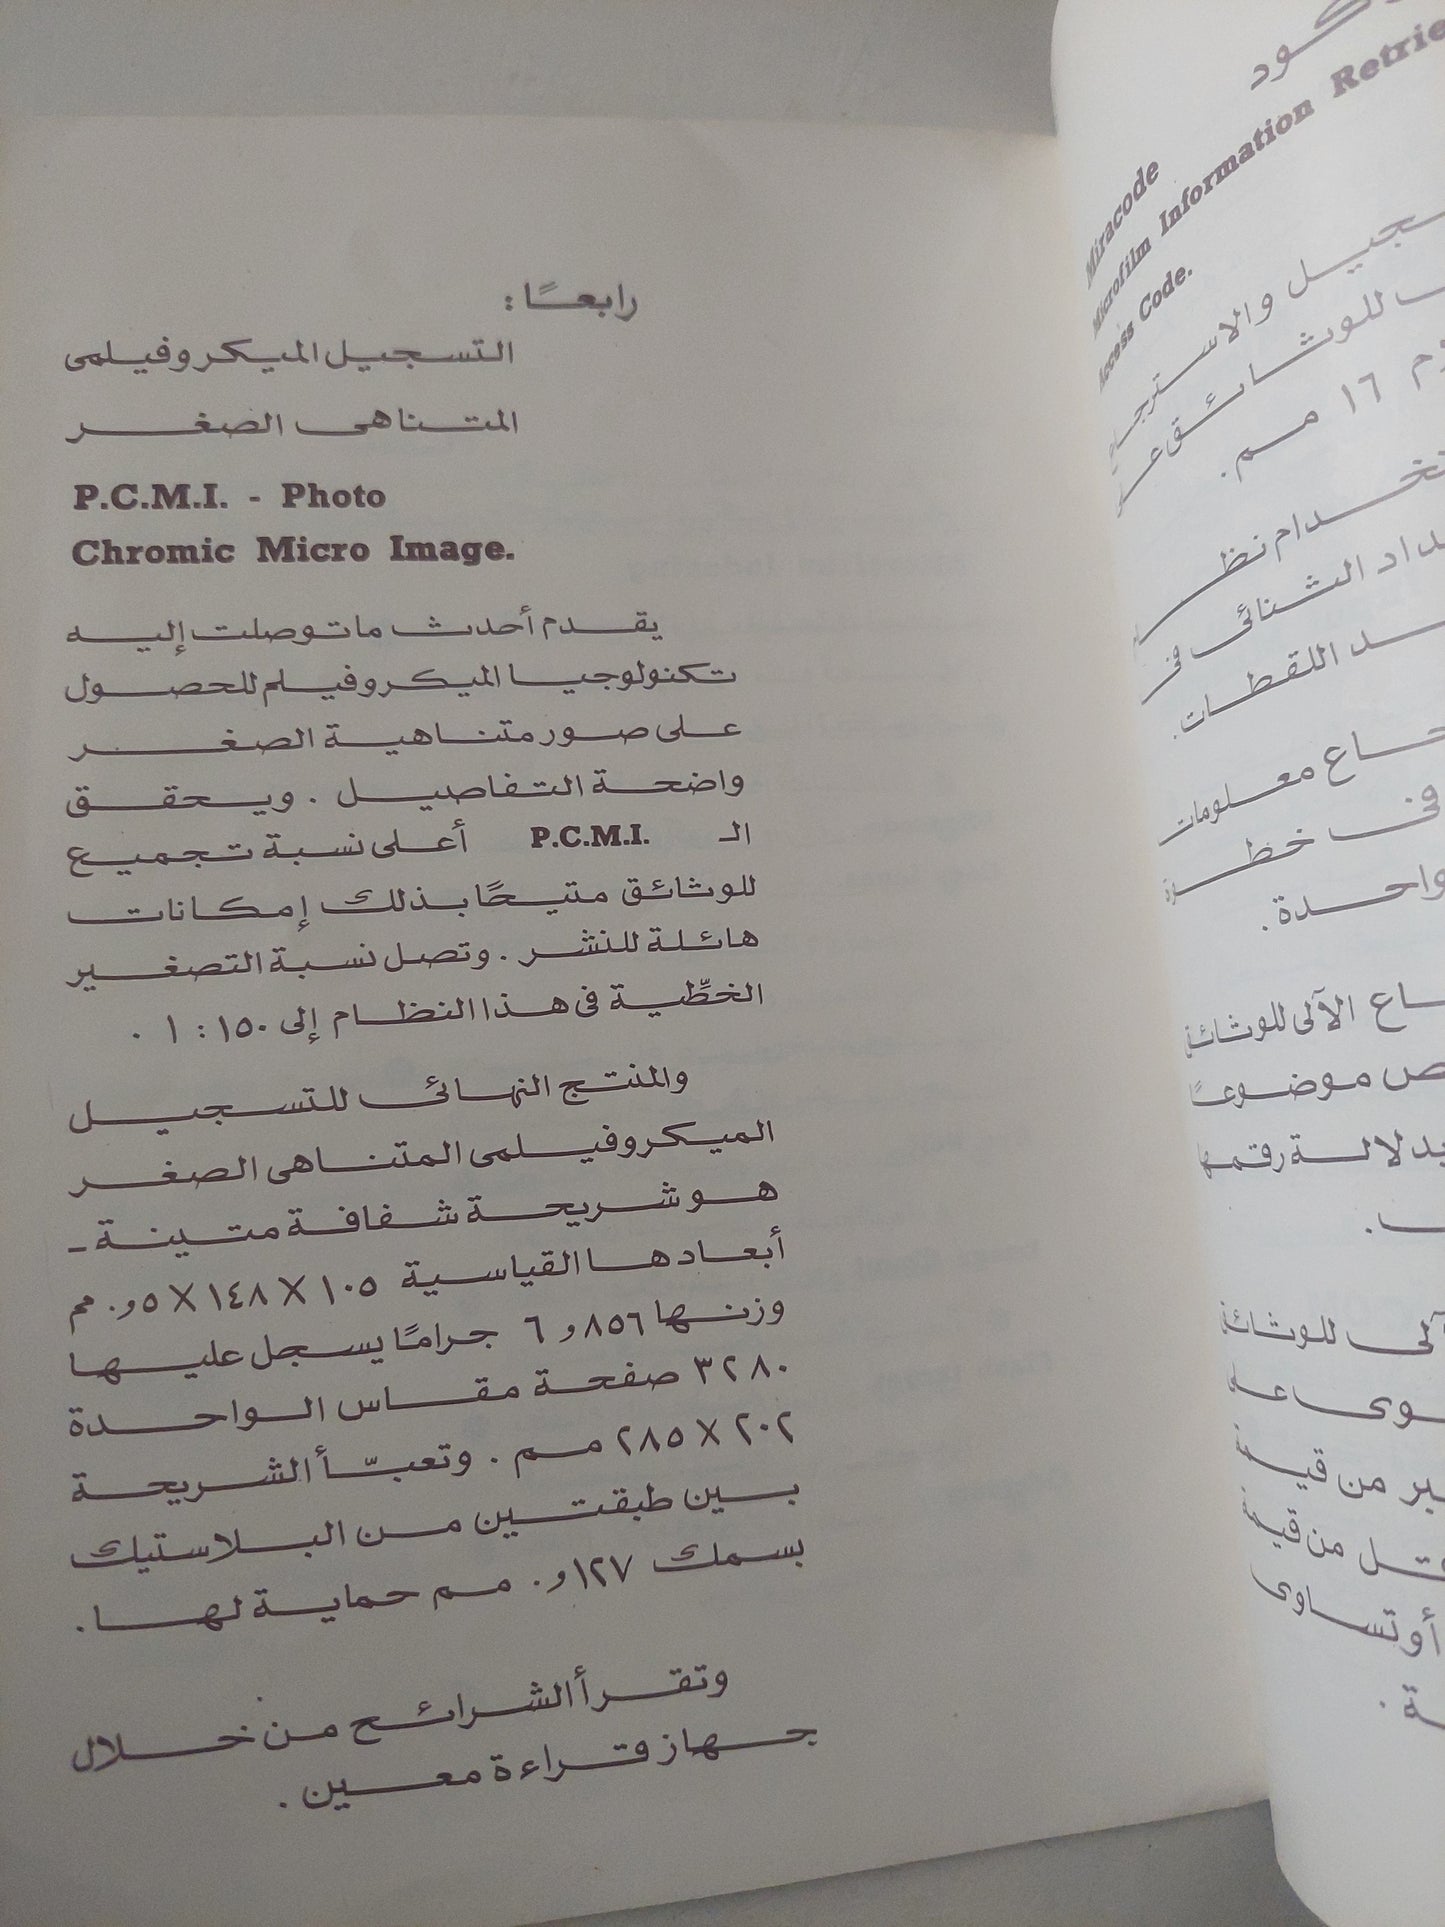 رابعًا :
التسجيل الميكروفيلمى
المتناهى الصغر
P.C.M.I. - Photo
Chromic Micro Image.
يقدم أحدث ماتوصلت إليه
تكنولوجيا الميكروفيلم للحصول
على صور متناهية الصغر
واضحة التفاصيل . ويحقق
الـ P.C.M.I. أعلى نسبة تجميع
للوثائق متيحًا بذلك إمكانات
هائلة للنشر . وتصل نسبة التصغير
الخطِّية فى هذا النظام إلى ١٥٠ : ١ .
والمنتج النهائى للتسجيل
الميكروفيلمى المتناهى الصغر
هو شريحة شفافة متينة -
أبعادها القياسية ١٠٥ X ١٤٨ X ٥و. مم
وزنها ٨٥٦و٦ جرامًا يسجل عليها
٣٢٨٠ صفحة مقاس الواحدة
٢٠٢ X ٢٨٥ مم . وتعبّأ الشريحة
بين طبقتين من البلاستيك
بسمك ١٢٧و. مم حماية لها .
وتقرأ الشرائح من خلال
جهاز قراءة معين .
Miracode
Microfilm Information
Access Code.
والاسترجاع
للوثائق
١٦ مم .
نظـ
الثنائى فى
اللقطات .
معلومات
فى خطـ
واحدة .
الآلى للوثائق
موضوعًا
بدلالة رقمها
للوثائق
من قيمة
من قيمة
أو تساوى